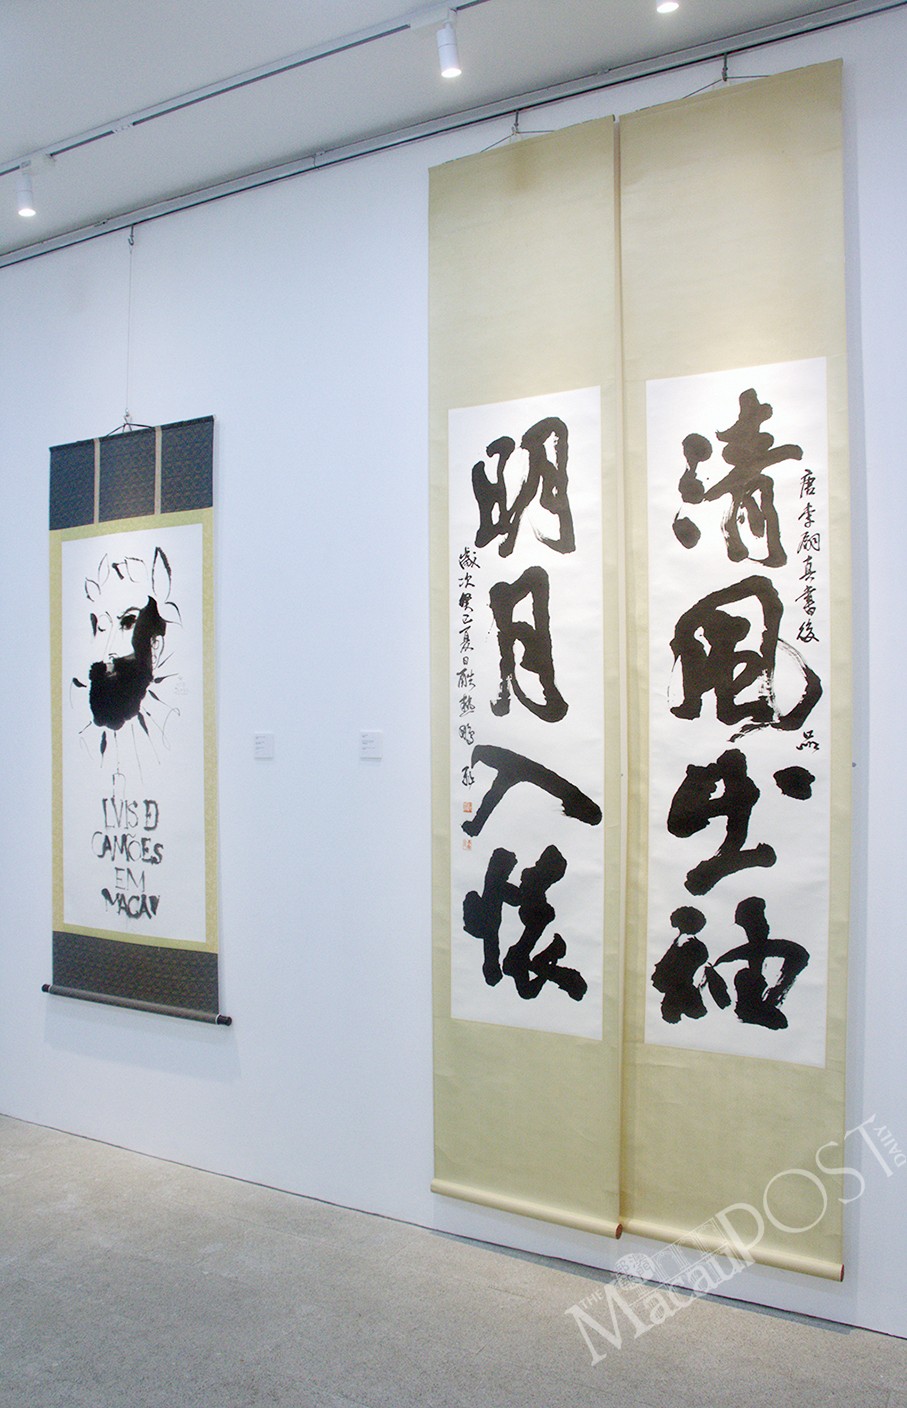 唐李嗣真書後品
清風出袖
明月入懷
歲次癸巳夏日酷熱
LVIS D
CAMÕES
EM
MACAV
THE MacauPOST DAILY